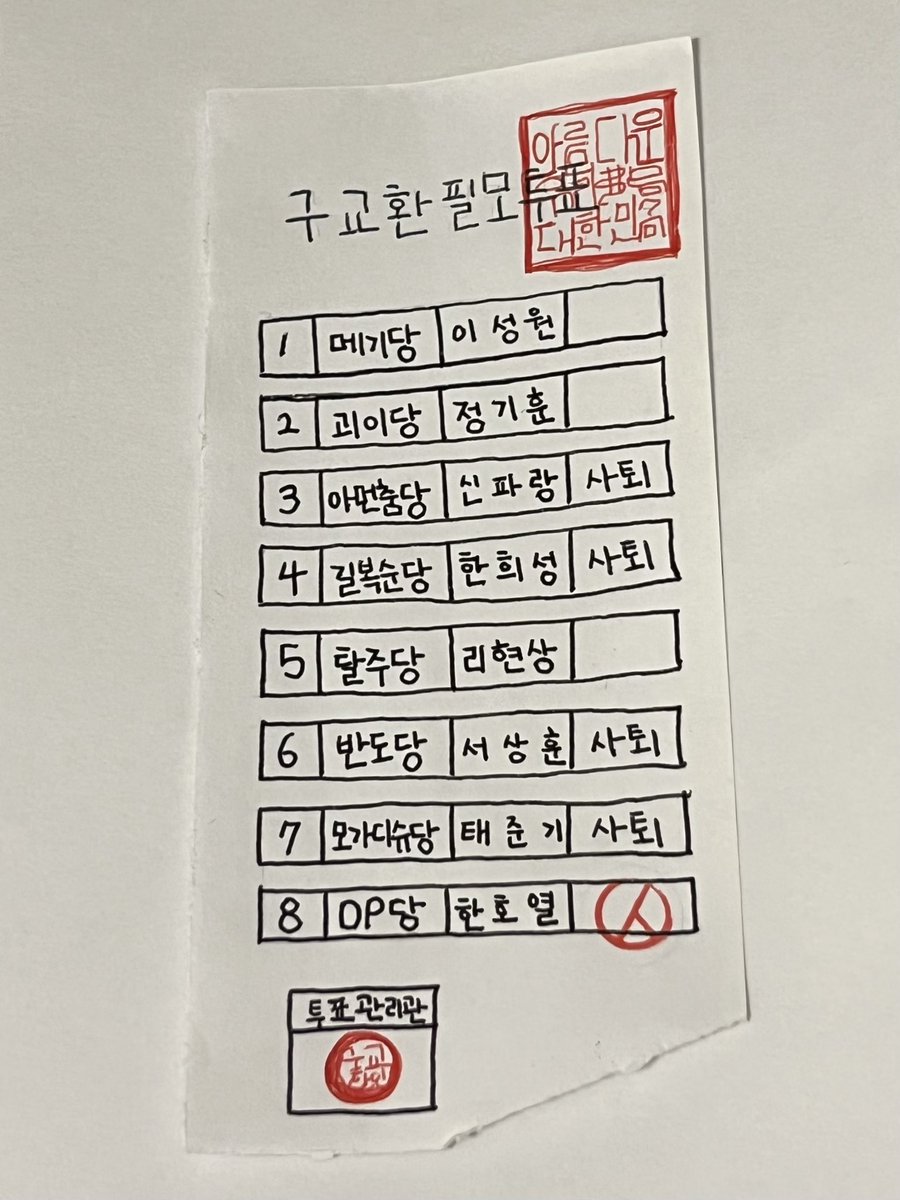 구교환 필모투표
아름다운
대한민국
1 메기당 이성원
2 괴이당 정기훈
3 아만춤당 신파랑 사퇴
4 길복순당 한희성 사퇴
5 탈주당 리현상
6 반도당 서상훈 사퇴
7 모가디슈당 태준기 사퇴
8 DP당 한호열
투표관리관